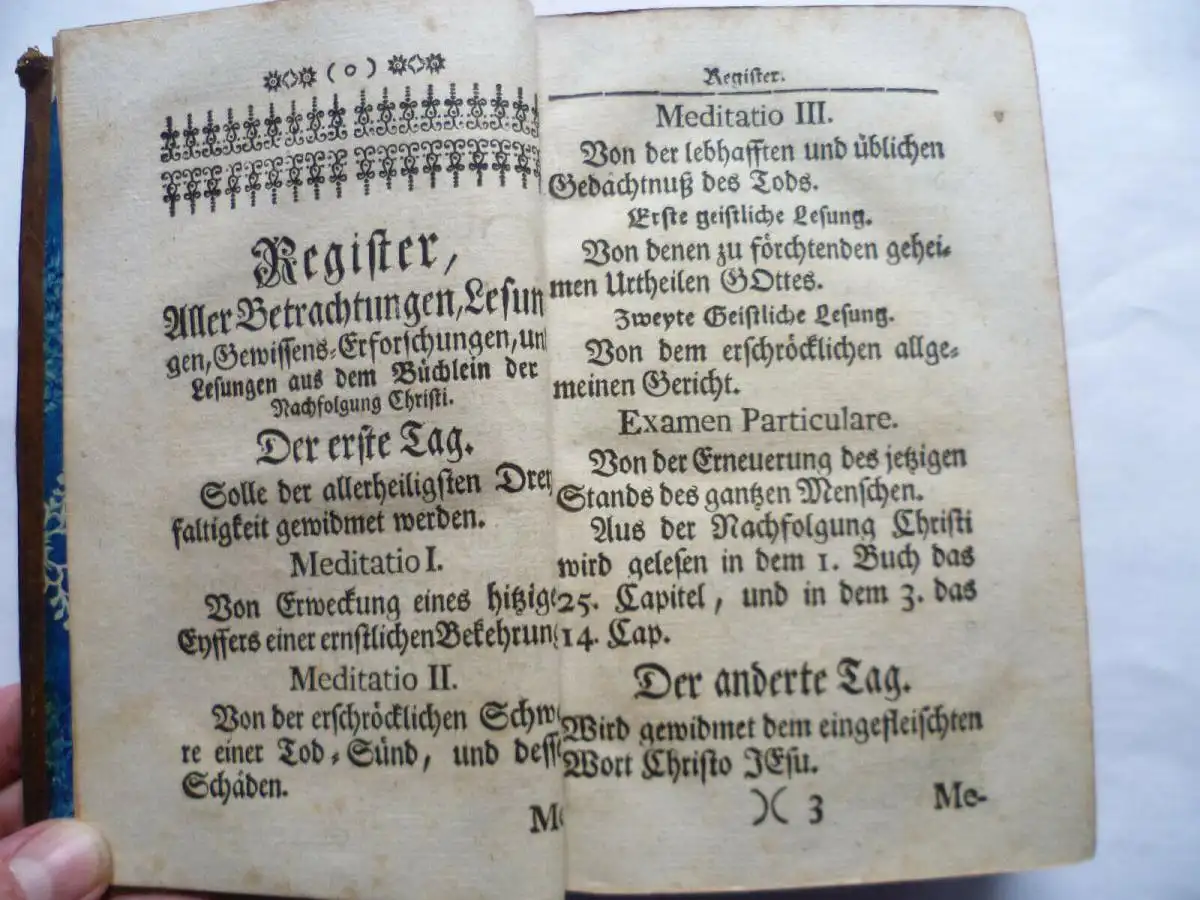 ( o )
Register,
Aller Betrachtungen, Lesun
gen, Gewissens-Erforschungen, un
Lesungen aus dem Büchlein der
Nachfolgung Christi.
Der erste Tag.
Solle der allerheiligsten Drey
faltigkeit gewidmet werden.
Meditatio I.
Von Erweckung eines hitzige
Eyffers einer ernstlichen Bekehrung
Meditatio II.
Von der erschröcklichen Schwe
re einer Tod-Sünd, und desse
Schäden.
Me
Register.
Meditatio III.
Von der lebhafften und üblichen
Gedächtnuß des Tods.
Erste geistliche Lesung.
Von denen zu förchtenden gehei-
men Urtheilen GOttes.
Zweyte Geistliche Lesung.
Von dem erschröcklichen allge-
meinen Gericht.
Examen Particulare.
Von der Erneuerung des jetzigen
Stands des gantzen Menschen.
Aus der Nachfolgung Christi
wird gelesen in dem 1. Buch das
25. Capitel, und in dem 3. das
14. Cap.
Der anderte Tag.
Wird gewidmet dem eingefleischten
Wort Christo JEsu.
)( 3 Me-